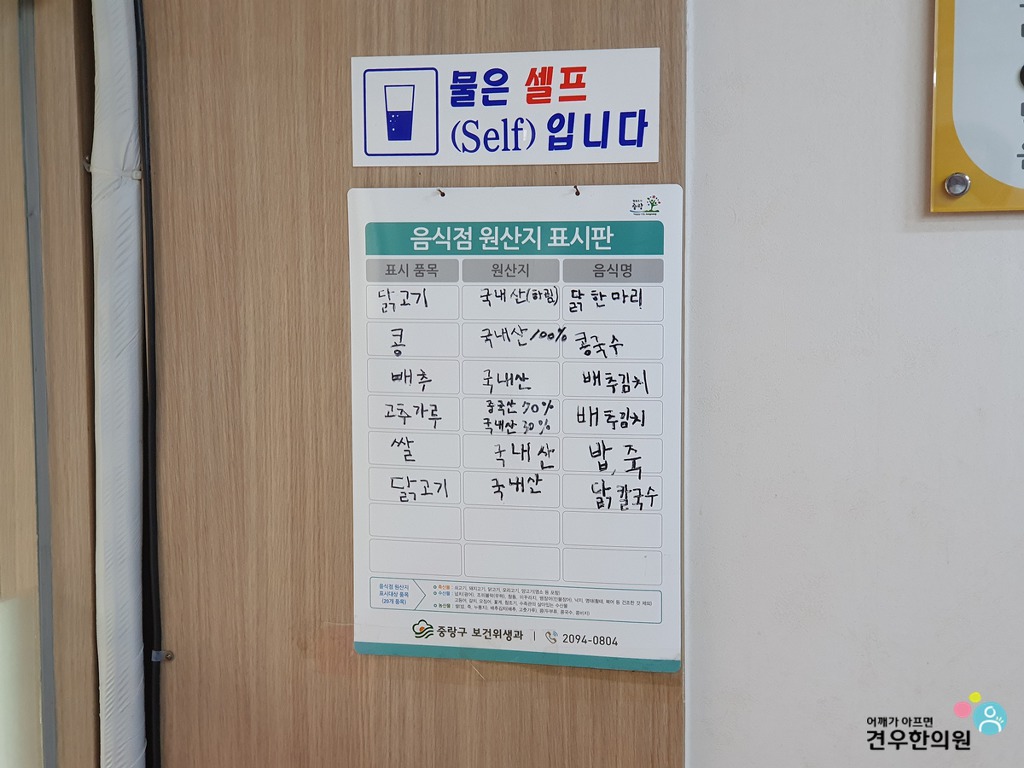 물은 셀프
(Self) 입니다
음식점 원산지 표시판
표시 품목 원산지 음식명
닭고기 국내산(하림) 닭한마리
콩 국내산100% 콩국수
빼추 국내산 배추김치
고추가루 중국산 70% 국내산 30% 배추김치
쌀 국내산 밥, 죽
닭고기 국내산 닭칼국수
음식점 원산지
표시대상 품목
(29개 품목)
축산물
수산물
농산물
중랑구 보건위생과 | 2094-0804
어깨가 아프면
견우한의원